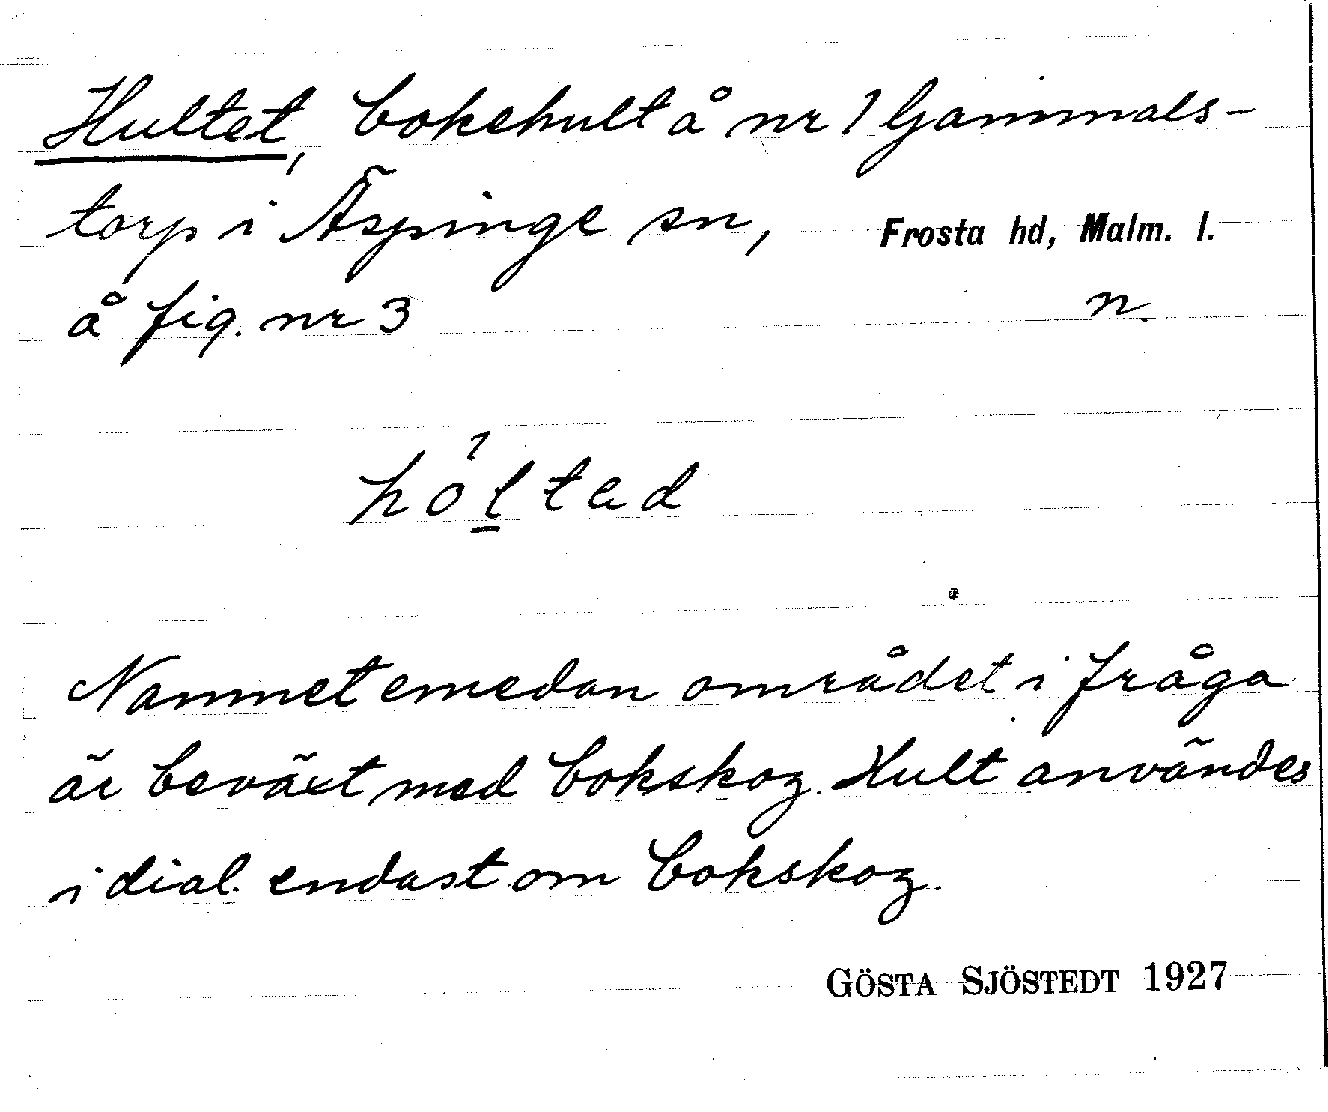 Hultet, bokehult å nr 1 Gammals-
torp i Äspinge sn, Frosta hd, Malm. l.
å fig. nr 3 n.
hoḻ́tad
Namnet emedan området i fråga
är beväxt med bokskog. Hult användes
i dial. endast om bokskog.
GÖSTA SJÖSTEDT 1927